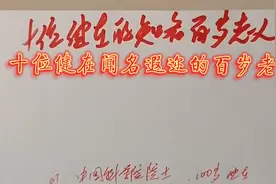 十位健在的知名百岁老人
十位健在闻名遐迩的百岁老
01 中国科学院院士 100岁 健在